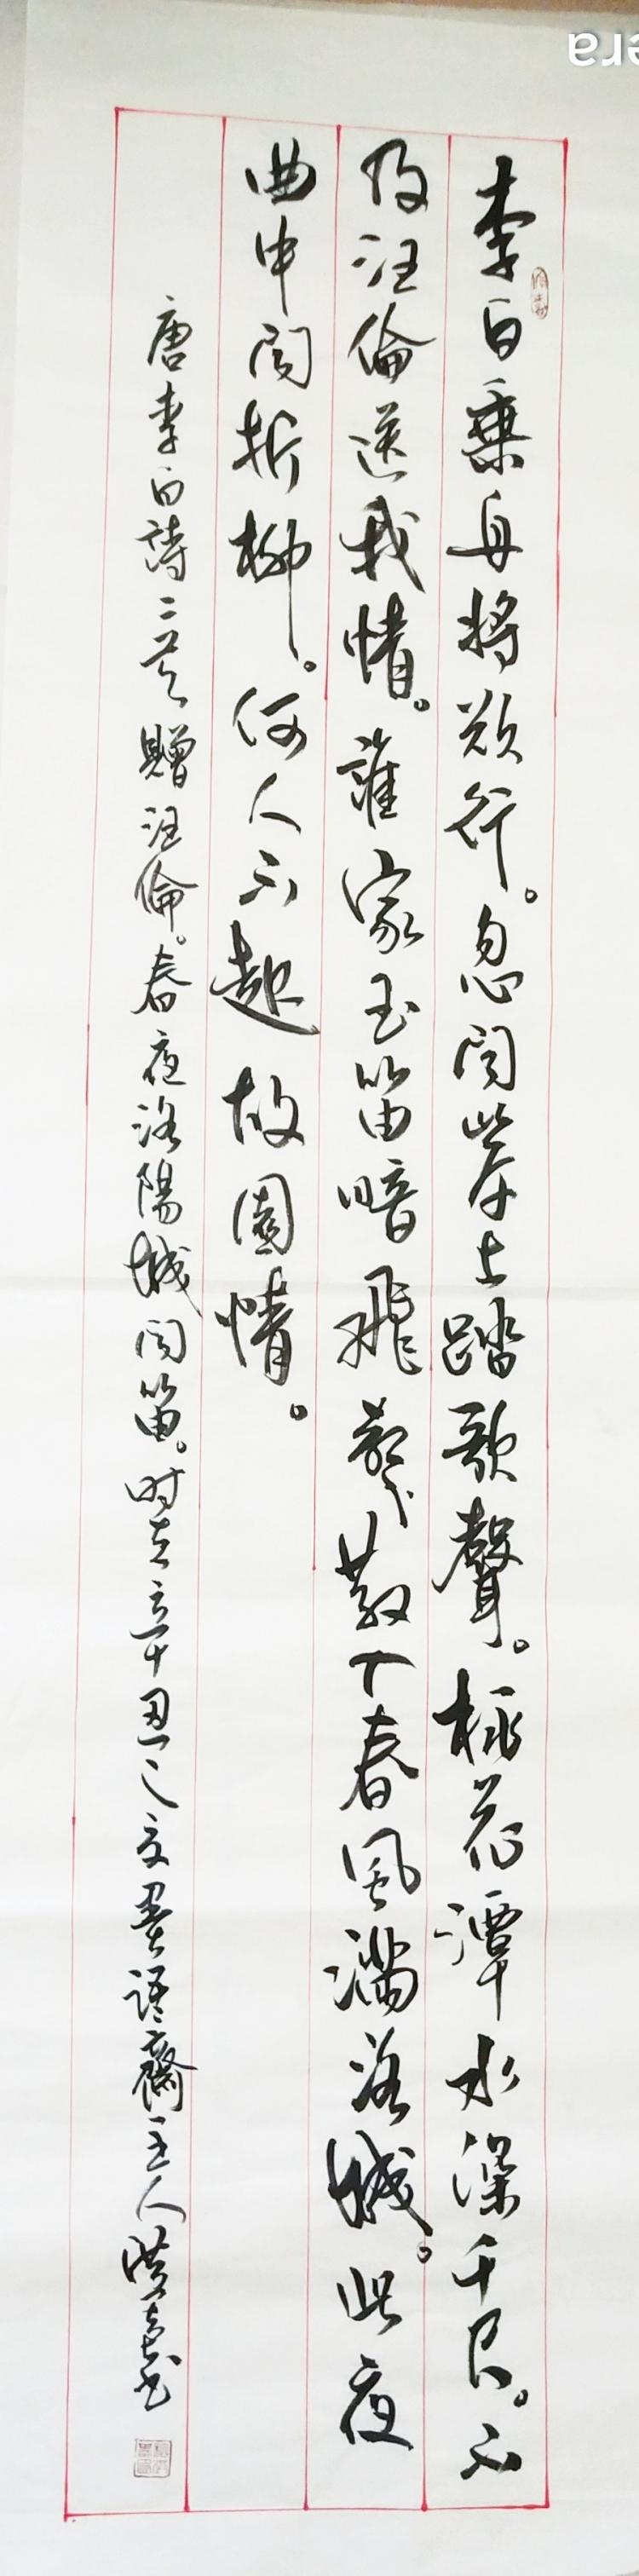 李白乘舟將欲行。忽聞岸上踏歌聲。桃花潭水深千尺。不
及汪倫送我情。誰家玉笛暗飛聲散入春風滿洛城。此夜
曲中聞折柳。何人不起故園情。
唐李白詩二首贈汪倫。春夜洛陽城聞笛。时在辛丑之夏墨語齋主人书